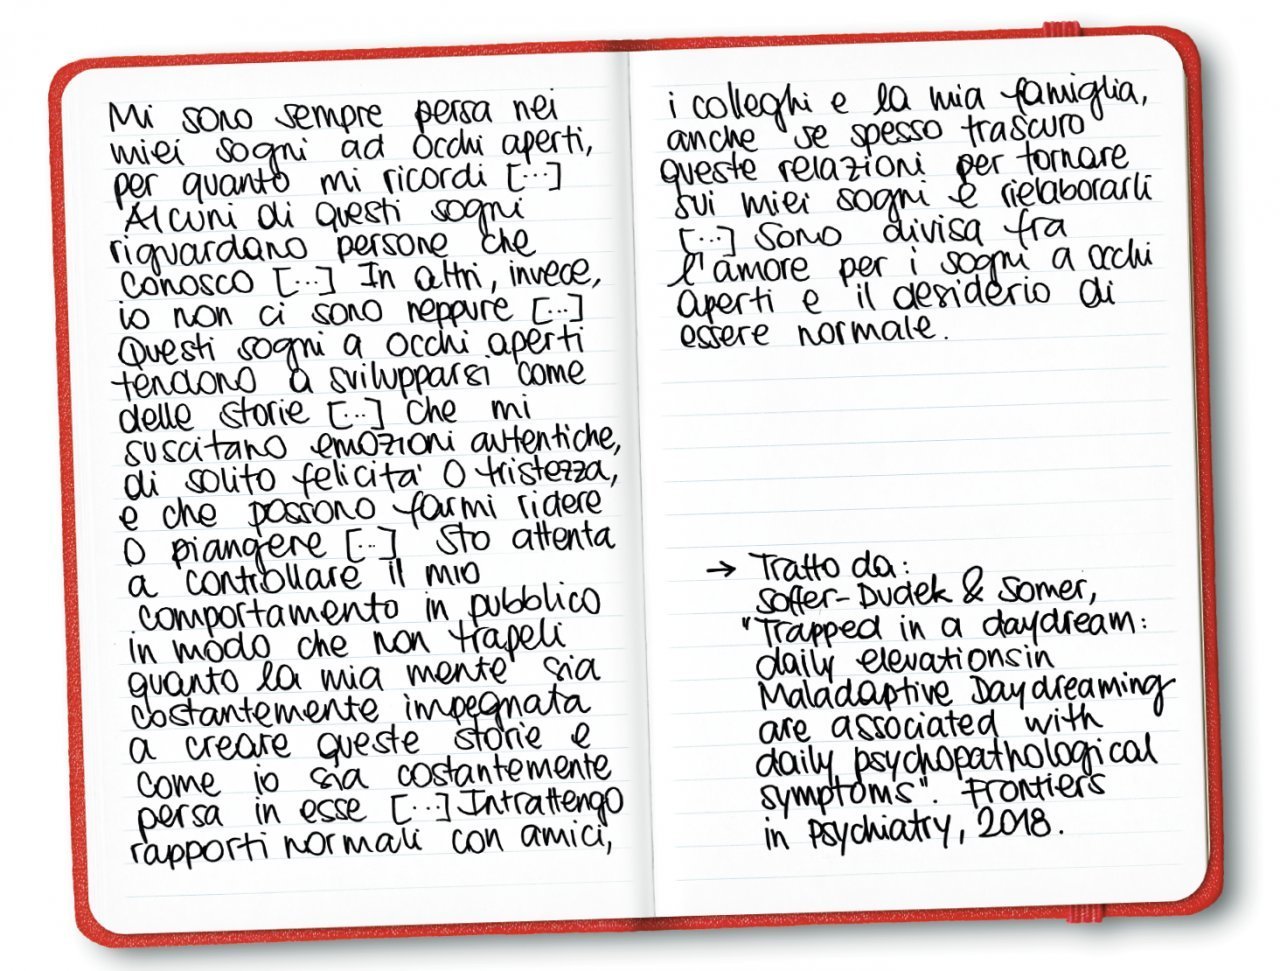 Mi sono sempre persa nei
miei sogni ad occhi aperti,
per quanto mi ricordi [...]
Alcuni di questi sogni
riguardano persone che
conosco [...] In altri, invece,
io non ci sono neppure [...]
Questi sogni a occhi aperti
tendono a svilupparsi come
delle storie [...] che mi
suscitano emozioni autentiche,
di solito felicità o tristezza,
e che possono farmi ridere
o piangere [...] Sto attenta
a controllare il mio
comportamento in pubblico
in modo che non trapeli
quanto la mia mente sia
costantemente impegnata
a creare queste storie e
come io sia costantemente
persa in esse [...] Intrattengo
rapporti normali con amici,
i colleghi e la mia famiglia,
anche se spesso trascuro
queste relazioni per tornare
sui miei sogni e rielaborarli
[...] Sono divisa fra
l'amore per i sogni a occhi
aperti e il desiderio di
essere normale.
→ Tratto da:
Soffer-Dudek & Somer,
"Trapped in a daydream:
daily elevations in
Maladaptive Daydreaming
are associated with
daily psychopathological
symptoms". Frontiers
in Psychiatry, 2018.